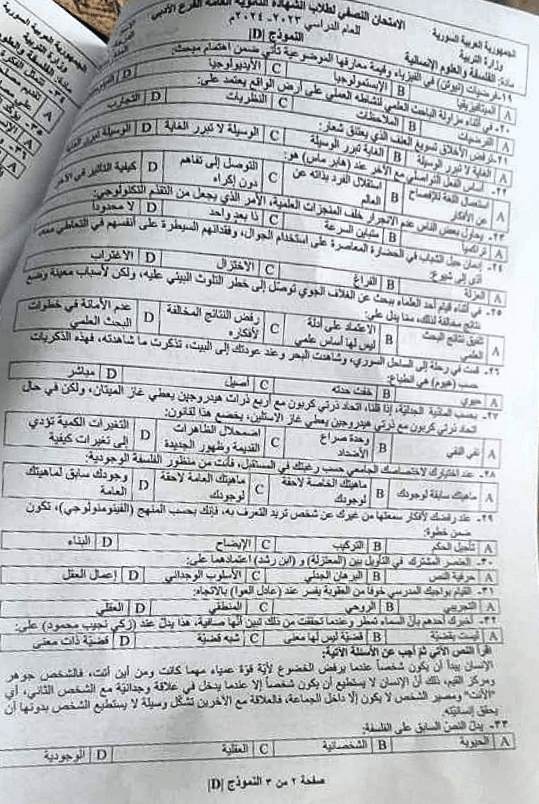 الجمهورية العربية السورية
وزارة التربية
مادة: الفلسفة والعلوم الإنسانية
الامتحان النصفي لطلاب الشهادة الثانوية العامة الفرع الأدبي
للعام الدراسي ٢٠٢٣-٢٠٢٤م
النموذج |D|
١٩- فرضيات (نيوتن) في الفيزياء وقيمة معارفها الموضوعية تأتي ضمن اهتمام مبحث:
A الميتافيزيقيا B الإبستمولوجيا C الأيديولوجيا D
٢٠- في أثناء مزاولة الباحث العلمي لنشاطه العملي على أرض الواقع يعتمد على:
A الفرضيات B الملاحظات C النظريات D التجارب
٢١- ترفض الأخلاق تسويغ العنف الذي يعتنق شعار:
A الغاية لا تبرر الوسيلة B الغاية تبرر الوسيلة C الوسيلة لا تبرر الغاية D الوسيلة تبرر الغاية
٢٢- أساس الفعل التواصلي مع الآخر عند (هابر ماس) هو:
A استعمال اللغة للإفصاح عن الأفكار B استقلال الفرد بذاته عن العالم C التوصل إلى تفاهم دون إكراه D كيفية التأثير في الآخر
٢٣- يحاول بعض الناس عدم الانجرار خلف المنجزات العلمية، الأمر الذي يجعل من التقدم التكنولوجي:
A تراكمياً B متباين السرعة C ذا بعد واحد D لا محدوداً
٢٤- إدمان جيل الشباب في الحضارة المعاصرة على استخدام الجوال، وفقدانهم السيطرة على أنفسهم في التعاطي معه،
أدى إلى شيوع:
A العزلة B الفراغ C الاختزال D الاغتراب
٢٥- في أثناء قيام أحد العلماء ببحث عن الغلاف الجوي توصّل إلى خطر التلوث البيئي عليه، ولكن لأسباب معينة وضع
نتائج مخالفة لذلك، مما يدل على:
A تلفيق نتائج البحث العلمي B الاعتماد على أدلة ليس لها أساس علمي C رفض النتائج المخالفة لأفكاره D عدم الأمانة في خطوات البحث العلمي
٢٦- قمت في رحلة إلى الساحل السوري، وشاهدت البحر وعند عودتك إلى البيت، تذكرت ما شاهدته، فهذه الذكريات
حسب (هيوم) هي انطباع:
A حيوي B خفت حدته C أصيل D مباشر
٢٧- بحسب المادية الجدلية، إذا قلنا، اتحاد ذرتي كربون مع أربع ذرات هيدروجين يعطي غاز الميتان، ولكن في حال
اتحاد ذرتي كربون مع ذرتي هيدروجين يعطي غاز الأستلين، يخضع هذا لقانون:
A نفي النفي B وحدة صراع الأضداد C اضمحلال الظاهرات القديمة وظهور الجديدة D التغيرات الكمية تؤدي إلى تغيرات كيفية
٢٨- عند اختيارك لاختصاصك الجامعي حسب رغبتك في المستقبل، فأنت من منظور الفلسفة الوجودية:
A ماهيتك سابقة لوجودك B ماهيتك الخاصة لاحقة لوجودك C ماهيتك العامة لاحقة لوجودك D وجودك سابق لماهيتك العامة
٢٩- عند رفضك لأفكار سمعتها من غيرك عن شخص تريد التعرف به، فإنك بحسب المنهج (الفينومنولوجي)، تكون
ضمن خطوة:
A تأجيل الحكم B التركيب C الإيضاح D البناء
٣٠- العنصر المشترك في التأويل بين (المعتزلة) و (ابن رشد) اعتمادهما على:
A حرفية النص B البرهان الجدلي C الأسلوب الوجداني D إعمال العقل
٣١- القيام بواجبك المدرسي خوفاً من العقوبة يفسر عند (عادل العوا) بالاتجاه:
A التجريبي B الروحي C المنطقي D العقلي
٣٢- أخبرك أحدهم بأن السماء تمطر وعندما تحققت من ذلك تبين أنها صافية، هذا يدل عند (زكي نجيب محمود) على:
A ليست بقضية B قضية ليس لها معنى C شبه قضية D قضية ذات معنى
اقرأ النص الآتي ثم أجب عن الأسئلة الآتية:
الإنسان يبدأ أن يكون شخصاً عندما يرفض الخضوع لأية قوة عمياء مهما كانت ومن أين أتت، فالشخص جوهر
ومركز القيم، ذلك لأن الإنسان لا يستطيع أن يكون شخصاً إلا عندما يدخل في علاقة وجدانية مع الشخص الثاني، أي
"الأنت" ومصير الشخص لا يكون إلا داخل الجماعة، فالعلاقة مع الآخرين تشكّل وسيلة لا يستطيع الشخص بدونها أن
يحقق إنسانيته
٣٣- يدل النص السابق على الفلسفة:
A الحيوية B الشخصانية C العقلية D الوجودية
صفحة ٢ من ٣ النموذج |D|